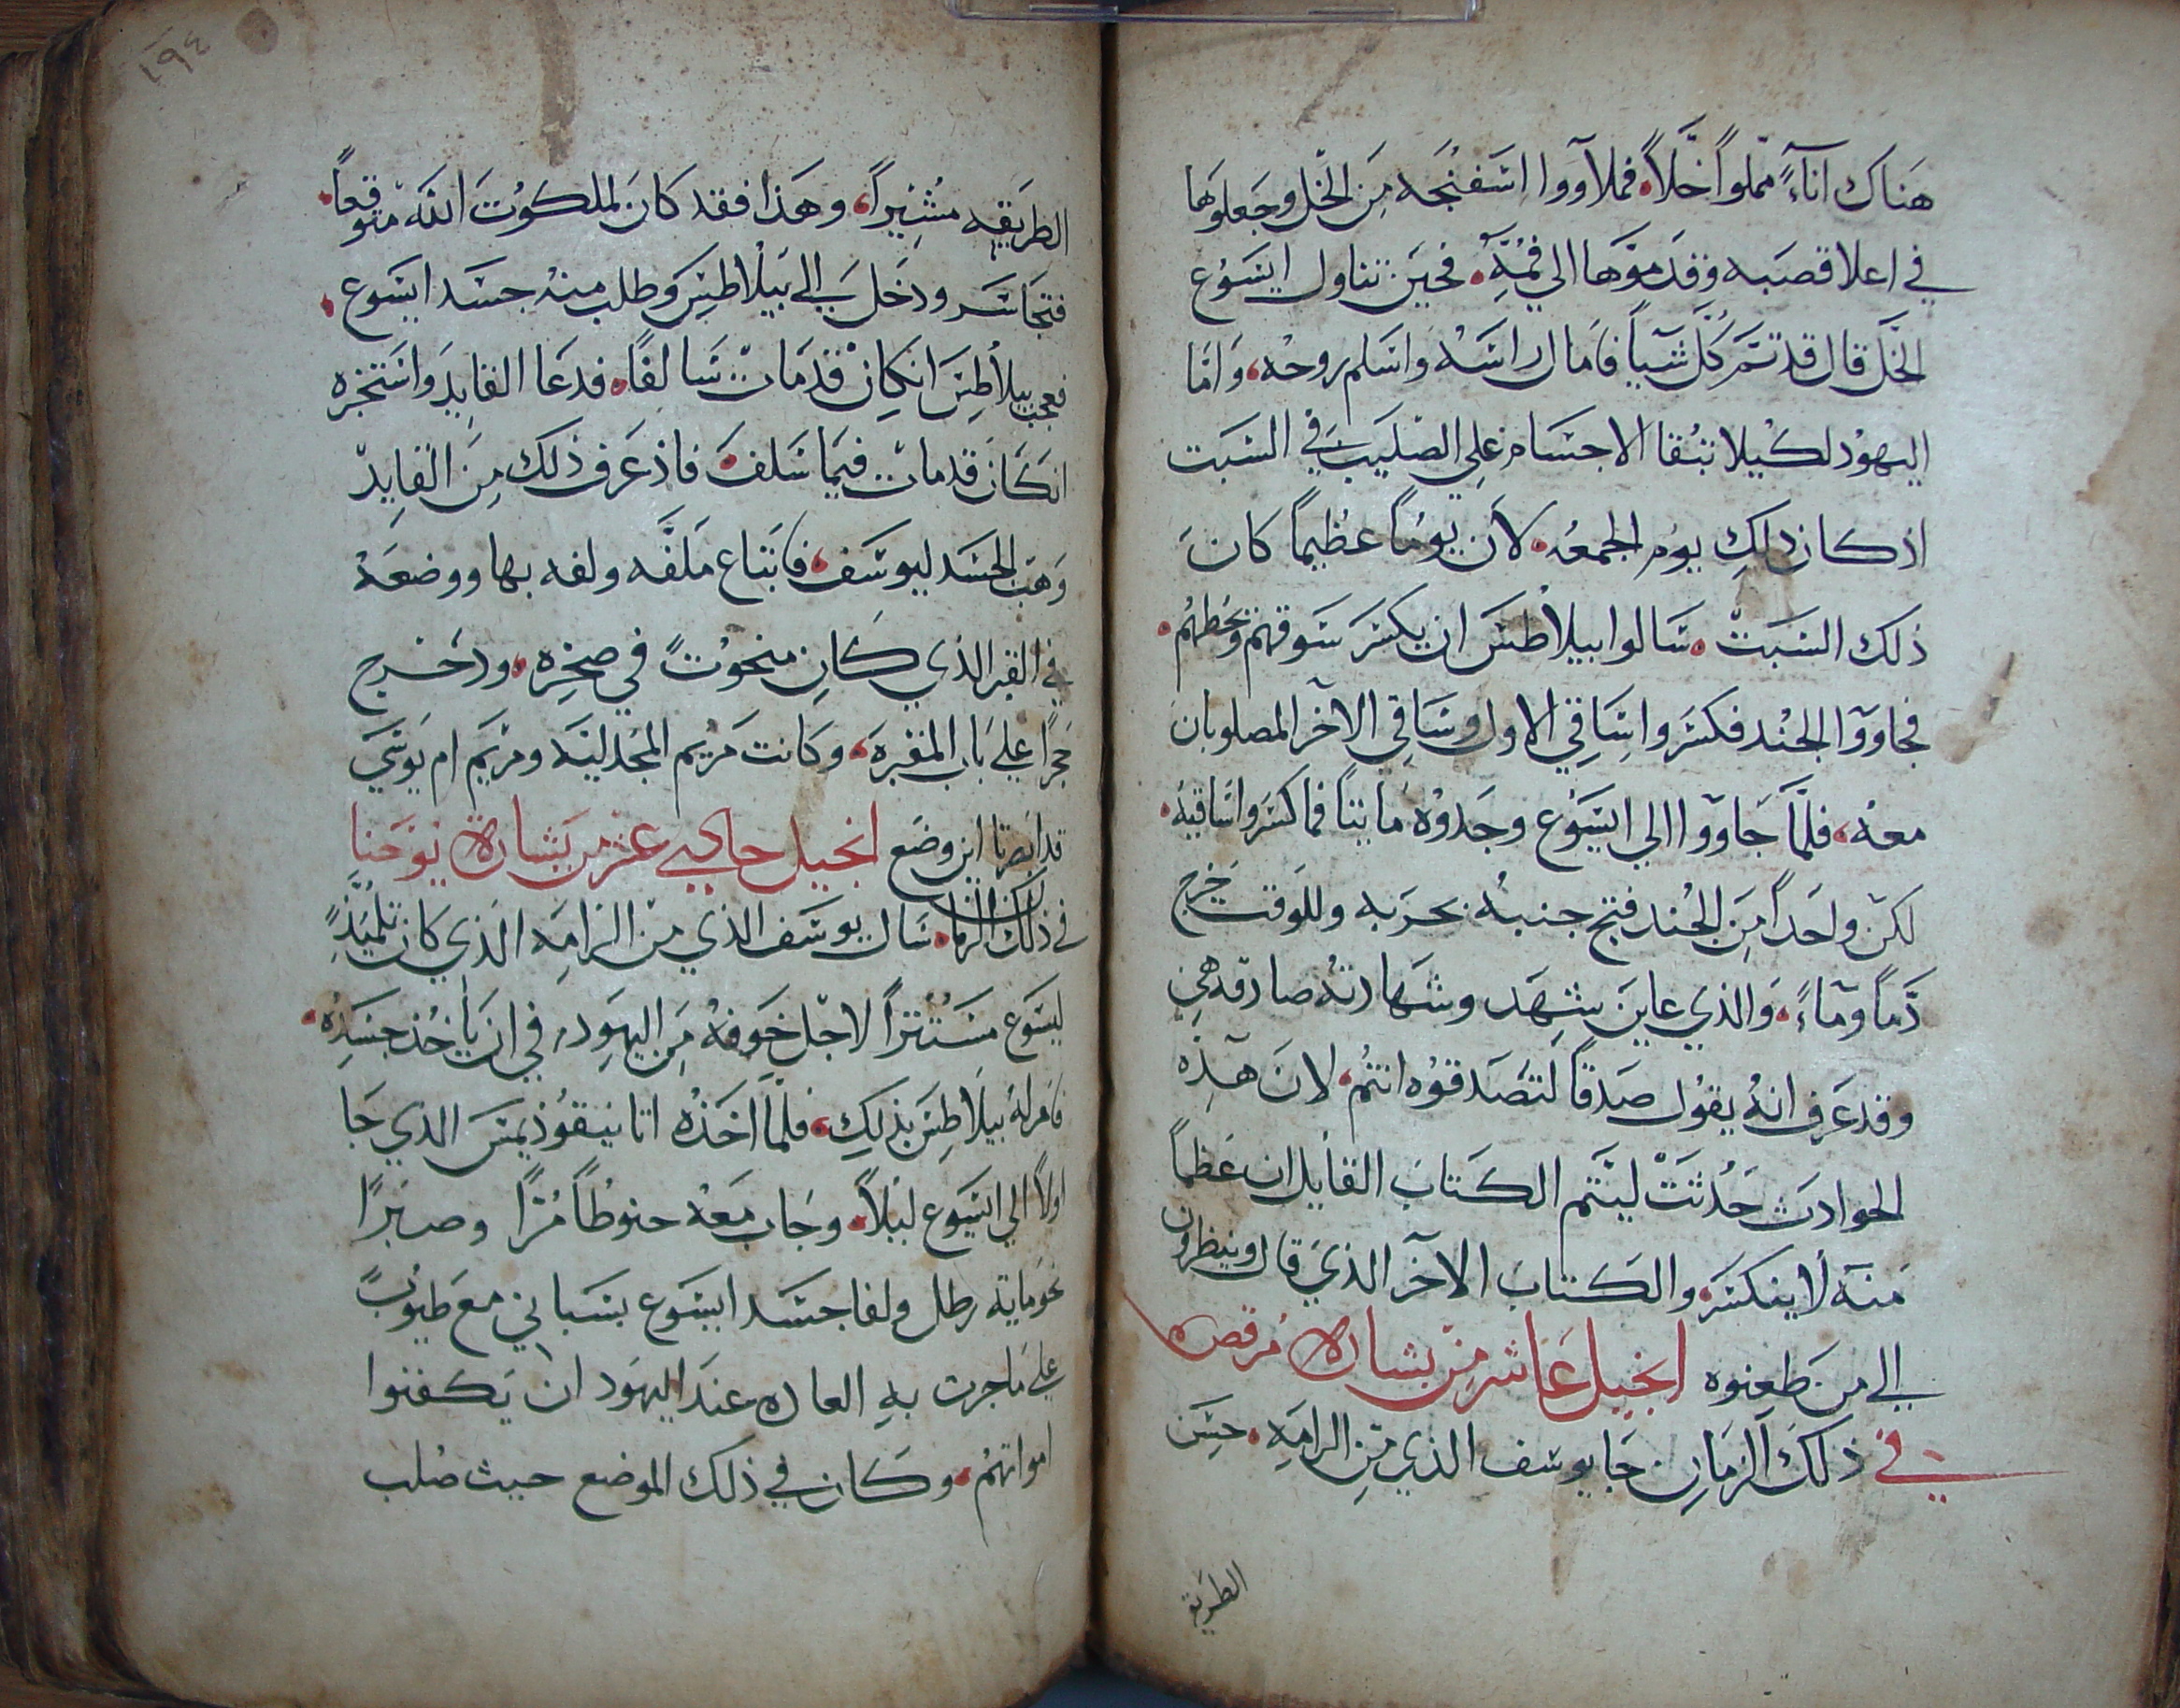 هَناك اناءً مملواً خلاً، فملاووا اسفنجه مِن الخل وجعلوها
في اعلا قصبه وقدموها الي فمُهِ، فحين تناول ايسُوع
الخل قال قد تم كل شياً فامال راسه واسلم روحه، وَامّا
اليهوُد لكيلا تبُقا الاجسام علي الصليب في السَبت
اذ كان ذلكِ يوم الجمعه، لان يوماً عظيماً كان
ذلك السبَت، سالوا بيلاطسَ ان يكسرَ سَوقهم وتحطهُم،
فجاووا الجند فكسَروا ساقي الاول وساقِي الاخر المصلوبان
معه، فلمّا جَاووا الي ايسَوع وجَدوُه مايتاً فما كسَروا ساقيه،
لكن واحداً مِن الجُند فتح جنبهُ بحرَبه وللوَقت خرج
دَماً ومآءً، وَالذي عاين شِهَد وشهادتهُ صادقه هي
وقد عَرف انهُ يقوُل صدقاً لتصَدقوُه انتم، لان هَذِه
الحوادث حَدُثتْ ليتم الكتاب القايل ان عَظماً
منه لا ينكسَر والكتاب الاخر الذيَ قال وينظرون
الي من طعِنوه انجيل عَاشر من بشارة مُرقص
في ذلكَ الزمان جَا يوسَف الذي مِن الرامَهِ، حسَن
الطريقه
الطريقه مُشيراً، وهَذا فقد كانَ لملكوُت الله متوقعاً،
فتجاسَر ودخَل الي بيلاطسَ وَطلب منهُ جسَد ايسَوع،
فعجب بيلاطسَ انكان قدمَات سَالفاً، فدعَا القايدَ واستخبره
انكَان قدمات فيمَا سَلفَ، فاذ عَرف ذلك مِن القايدْ
وَهَب الجسَد ليوسَف، فابَتاع مَلفَه ولفه بها ووضعَهْ
في القبر الذي كان منحوُتً في صخرِه، ودحَرج
حَجراً علي بَاب المقبرهَ، وكانت مَريم المجدليَه ومرَيم ام يوسَي
قد ابصرَتا اين وضَع انجيل حادي عشر من بشارة يوحَنا
في ذلك الزمان، سَال يوسَف الذي من الرامَه الذي كان تلميذً
ليسَوع مسَتتراً لاجل خَوفهُ مِن اليهَود، في ان يَاخُذ جسَدِه،
فامرلهُ بيلاطِسَ بذلكِ، فلمّا اخَذهُ اتا نيقوُذيمسَ الذي جَا
اولاً الي ايسَوع ليَلاً، وجَاب معَهْ حنوطاً مُراً وصبَراً
نحَو مايه رطل ولفا جسَد ايسَوع بسَباني مع طيُوبً
علي مَا جرت بهِ العاده عند اليهوَد ان يَكفنوا
امواتهمُ، وكان في ذلك الموضع حيث صُلب
١٩٤